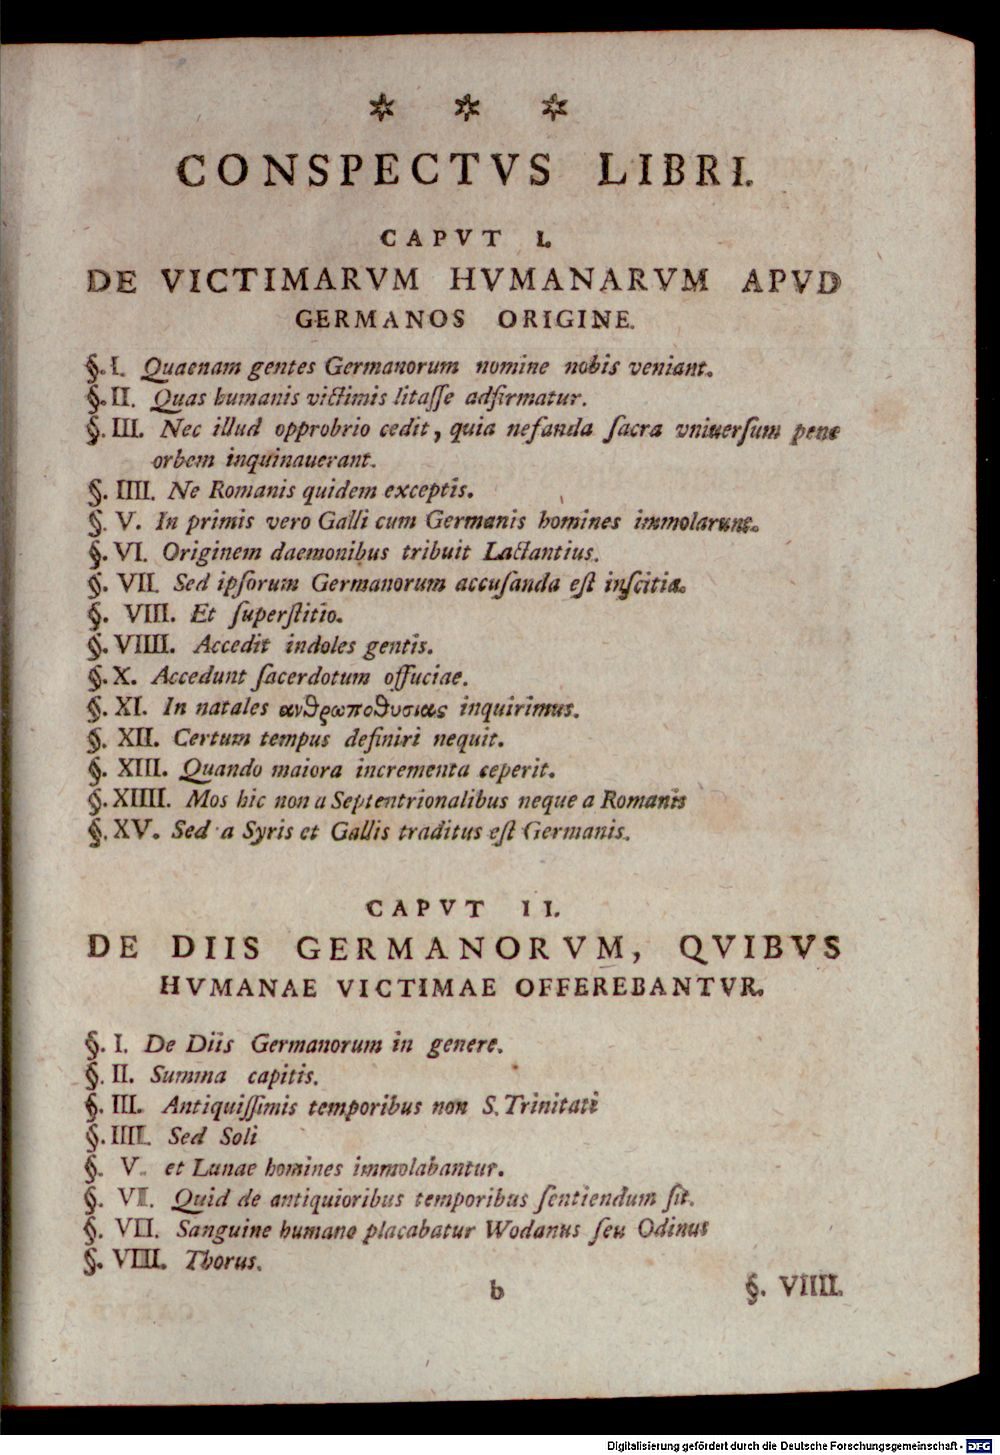 * * *
CONSPECTVS LIBRI.
CAPVT I.
DE VICTIMARVM HVMANARVM APVD
GERMANOS ORIGINE.
§. I. Quaenam gentes Germanorum nomine nobis veniant.
§. II. Quas humanis victimis litaſſe adfirmatur.
§. III. Nec illud opprobrio cedit, quia nefanda ſacra vniuerſum pene
orbem inquinauerant.
§. IIII. Ne Romanis quidem exceptis.
§. V. In primis vero Galli cum Germanis homines immolarunt.
§. VI. Originem daemonibus tribuit Lactantius.
§. VII. Sed ipſorum Germanorum accuſanda eſt inſcitia.
§. VIII. Et ſuperſtitio.
§. VIIII. Accedit indoles gentis.
§. X. Accedunt ſacerdotum offuciae.
§. XI. In natales ανθρωποθυσιας inquirimus.
§. XII. Certum tempus definiri nequit.
§. XIII. Quando maiora incrementa ceperit.
§. XIIII. Mos hic non a Septentrionalibus neque a Romanis
§. XV. Sed a Syris et Gallis traditus eſt Germanis.
CAPVT II.
DE DIIS GERMANORVM, QVIBVS
HVMANAE VICTIMAE OFFEREBANTVR.
§. I. De Diis Germanorum in genere.
§. II. Summa capitis.
§. III. Antiquiſſimis temporibus non S. Trinitati
§. IIII. Sed Soli
§. V. et Lunae homines immolabantur.
§. VI. Quid de antiquioribus temporibus ſentiendum ſit.
§. VII. Sanguine humano placabatur Wodanus ſeu Odinus
§. VIII. Thorus.
b §. VIIII.
Digitalisierung gefördert durch die Deutsche Forschungsgemeinschaft - DFG